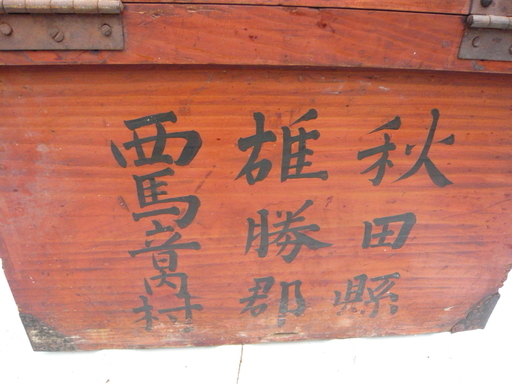 秋田縣
雄勝郡
西馬音内村